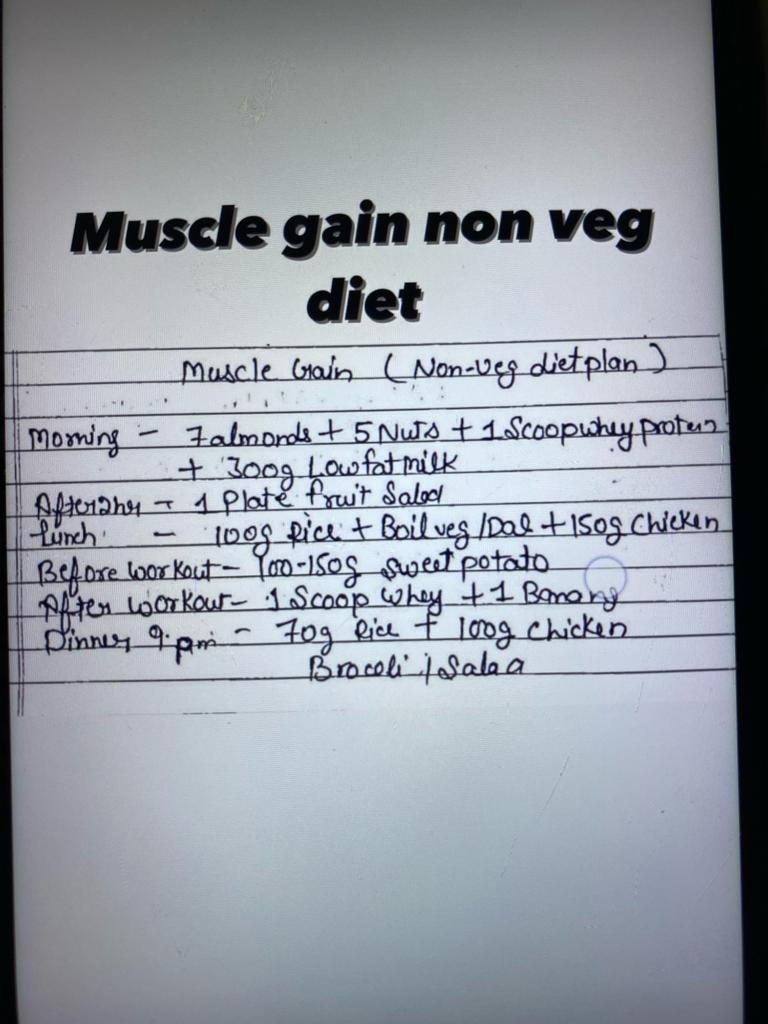 Muscle gain non veg
diet
Muscle Gain (Non-veg diet plan)
Morning - 7 almonds + 5 Nuts + 1 Scoop whey protein
+ 300g Low fat milk
After 2hr - 1 Plate fruit Salad
Lunch - 100g Rice + Boil veg / Dal + 150g Chicken
Before workout - 100-150g sweet potato
After workout - 1 Scoop whey + 1 Banana
Dinner 9. pm - 70g Rice + 100g Chicken
Brocoli / Salaa